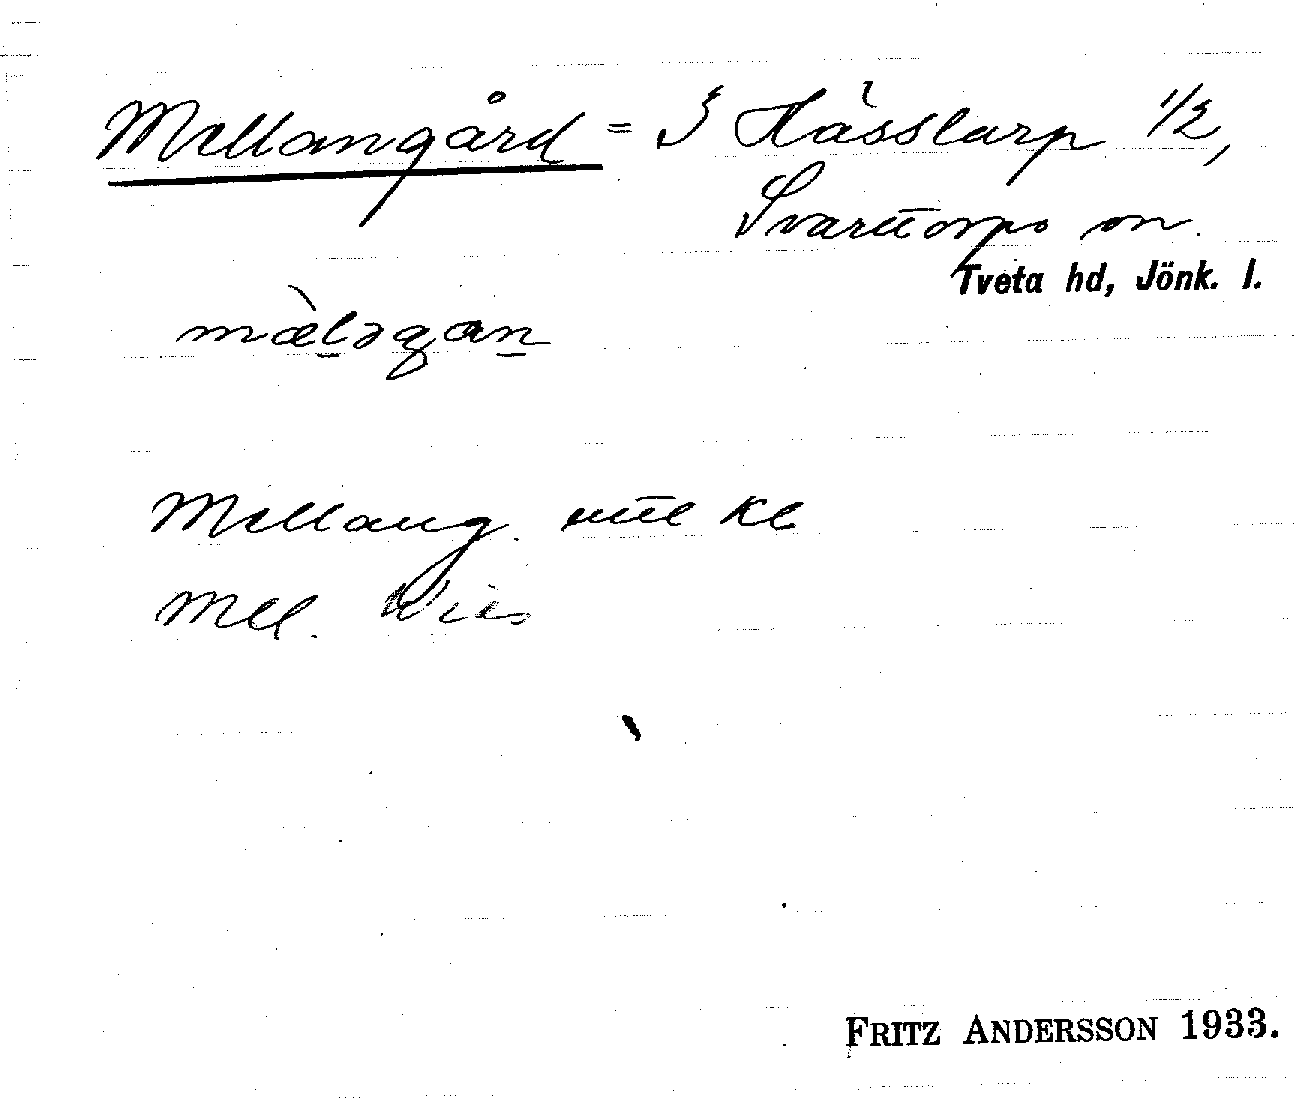 Mellangård = i Hässlarp 1/2,
Svarttorps sn.
Tveta hd, Jönk. l.
mæ̀ləgan
Mellang.
Mell.
FRITZ ANDERSSON 1933.